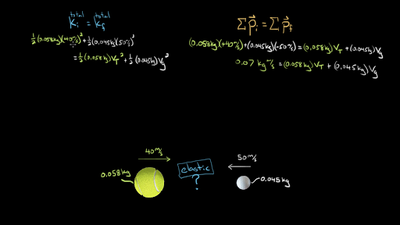 total total
K_i = K_f
½(0.058kg)(40m/s)²+½(0.045kg)(50m/s)²
=½(0.058kg)V_T²+½(0.045kg)V_g²
Σp⃗_i = Σp⃗_f
(0.058kg)(+40m/s)+(0.045kg)(-50m/s)=(0.058kg)V_T+(0.045kg)V_g
0.07 kg m/s =(0.058kg)V_T + (0.045kg)V_g
40m/s
50m/s
elastic
?
0.058kg
0.045kg